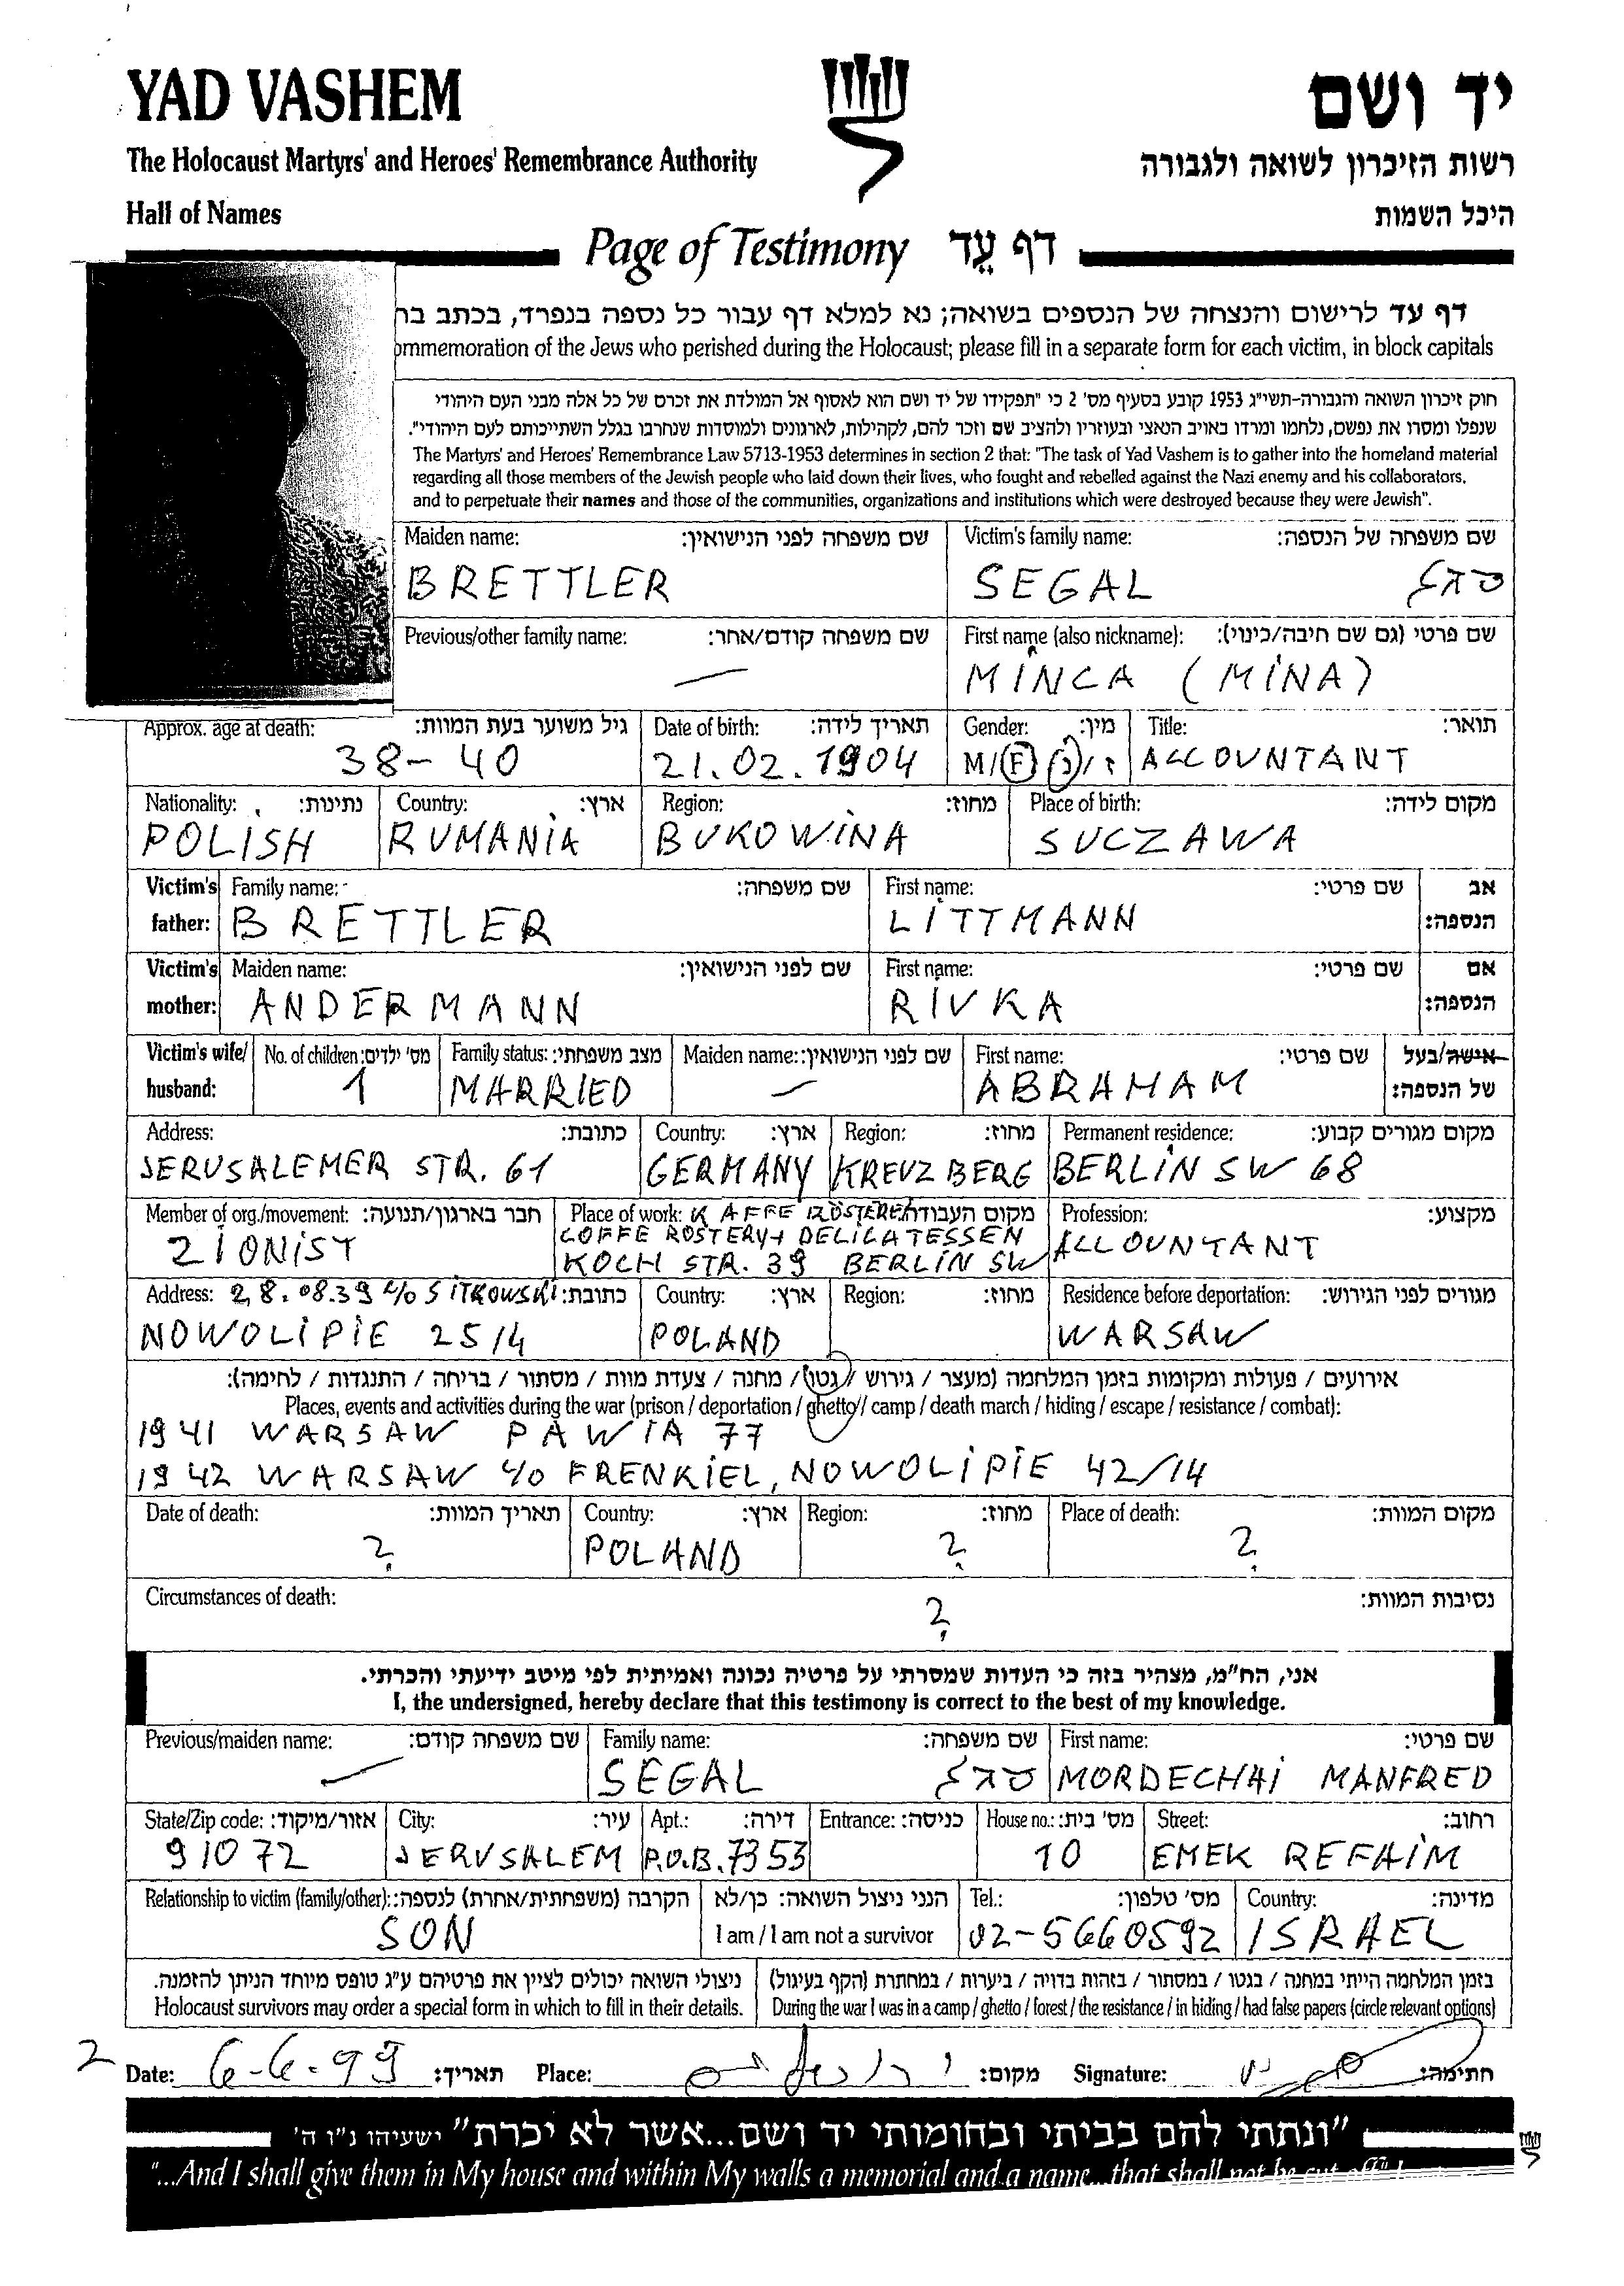 YAD VASHEM
יד ושם
The Holocaust Martyrs' and Heroes' Remembrance Authority
רשות הזיכרון לשואה ולגבורה
Hall of Names
היכל השמות
Page of Testimony דף עֵד
דף עד לרישום והנצחה של הנספים בשואה; נא למלא דף עבור כל נספה בנפרד, בכתב
commemoration of the Jews who perished during the Holocaust; please fill in a separate form for each victim, in block capitals
חוק זיכרון השואה והגבורה-תשי"ג 1953 קובע בסעיף מס' 2 כי "תפקידו של יד ושם הוא לאסוף אל המולדת את זכרם של כל אלה מבני העם היהודי
שנפלו ומסרו את נפשם, נלחמו ומרדו באויב הנאצי ובעוזריו ולהציב שם וזכר להם, לקהילות, לארגונים ולמוסדות שנחרבו בגלל השתייכותם לעם היהודי".
The Martyrs' and Heroes' Remembrance Law 5713-1953 determines in section 2 that: "The task of Yad Vashem is to gather into the homeland material
regarding all those members of the Jewish people who laid down their lives, who fought and rebelled against the Nazi enemy and his collaborators,
and to perpetuate their names and those of the communities, organizations and institutions which were destroyed because they were Jewish".
Maiden name: שם משפחה לפני הנישואין: Victim's family name: שם משפחה של הנספה:
BRETTLER SEGAL סגל
Previous/other family name: שם משפחה קודם/אחר: First name (also nickname): שם פרטי (גם שם חיבה/כינוי):
— MINCA (MINA)
Approx. age at death: גיל משוער בעת המוות: Date of birth: תאריך לידה: Gender: מין: Title: תואר:
38-40 21.02.1904 M/F נ/ז ACCOUNTANT
Nationality: נתינות: Country: ארץ: Region: מחוז: Place of birth: מקום לידה:
POLISH RUMANIA BUKOWINA SUCZAWA
Victim's Family name: שם משפחה: First name: שם פרטי: אב
father: BRETTLER LITTMANN הנספה:
Victim's Maiden name: שם לפני הנישואין: First name: שם פרטי: אם
mother: ANDERMANN RIVKA הנספה:
Victim's wife/ No. of children: מס' ילדים: Family status: מצב משפחתי: Maiden name: שם לפני הנישואין: First name: שם פרטי: אישה/בעל
husband: 1 MARRIED — ABRAHAM של הנספה:
Address: כתובת: Country: ארץ: Region: מחוז: Permanent residence: מקום מגורים קבוע:
JERUSALEMER STR. 61 GERMANY KREUZBERG BERLIN SW 68
Member of org./movement: חבר בארגון/תנועה: Place of work: KAFFE RÖSTEREI מקום העבודה Profession: מקצוע:
ZIONIST COFFE ROSTERY+ DELICATESSEN ACCOUNTANT
KOCH STR. 39 BERLIN SW
Address: 28.08.39 c/o SITKOWSKI כתובת: Country: ארץ: Region: מחוז: Residence before deportation: מגורים לפני הגירוש:
NOWOLIPIE 25/4 POLAND WARSAW
אירועים / פעולות ומקומות בזמן המלחמה (מעצר / גירוש / גטו / מחנה / צעדת מוות / מסתור / בריחה / התנגדות / לחימה):
Places, events and activities during the war (prison / deportation / ghetto / camp / death march / hiding / escape / resistance / combat):
1941 WARSAW PAWIA 77
1942 WARSAW c/o FRENKIEL, NOWOLIPIE 42/14
Date of death: תאריך המוות: Country: ארץ: Region: מחוז: Place of death: מקום המוות:
? POLAND ? ?
Circumstances of death: נסיבות המוות:
?
אני, הח"מ, מצהיר בזה כי העדות שמסרתי על פרטיה נכונה ואמיתית לפי מיטב ידיעתי והכרתי.
I, the undersigned, hereby declare that this testimony is correct to the best of my knowledge.
Previous/maiden name: שם משפחה קודם: Family name: שם משפחה: First name: שם פרטי:
— SEGAL סגל MORDECHAI MANFRED
State/Zip code: אזור/מיקוד: City: עיר: Apt.: דירה: Entrance: כניסה: House no.: מס' בית: Street: רחוב:
91072 JERUSALEM P.O.B. 7353 10 EMEK REFAIM
Relationship to victim (family/other): הקרבה (משפחתית/אחרת) לנספה: הנני ניצול השואה: כן/לא Tel.: מס' טלפון: Country: מדינה:
SON I am / I am not a survivor 02-5660592 ISRAEL
ניצולי השואה יכולים לציין את פרטיהם ע"ג טופס מיוחד הניתן להזמנה. בזמן המלחמה הייתי במחנה / בגטו / במסתור / בזהות בדויה / ביערות / במחתרת (הקף בעיגול)
Holocaust survivors may order a special form in which to fill in their details. During the war I was in a camp / ghetto / forest / the resistance / in hiding / had false papers (circle relevant options)
2 Date: 6-6-99 תאריך: Place: ירושלים מקום: Signature: חתימה:
"ונתתי להם בביתי ובחומותי יד ושם...אשר לא יכרת" ישעיהו נ"ו ה'
"...And I shall give them in My house and within My walls a memorial and a name...that shall not be cut off"